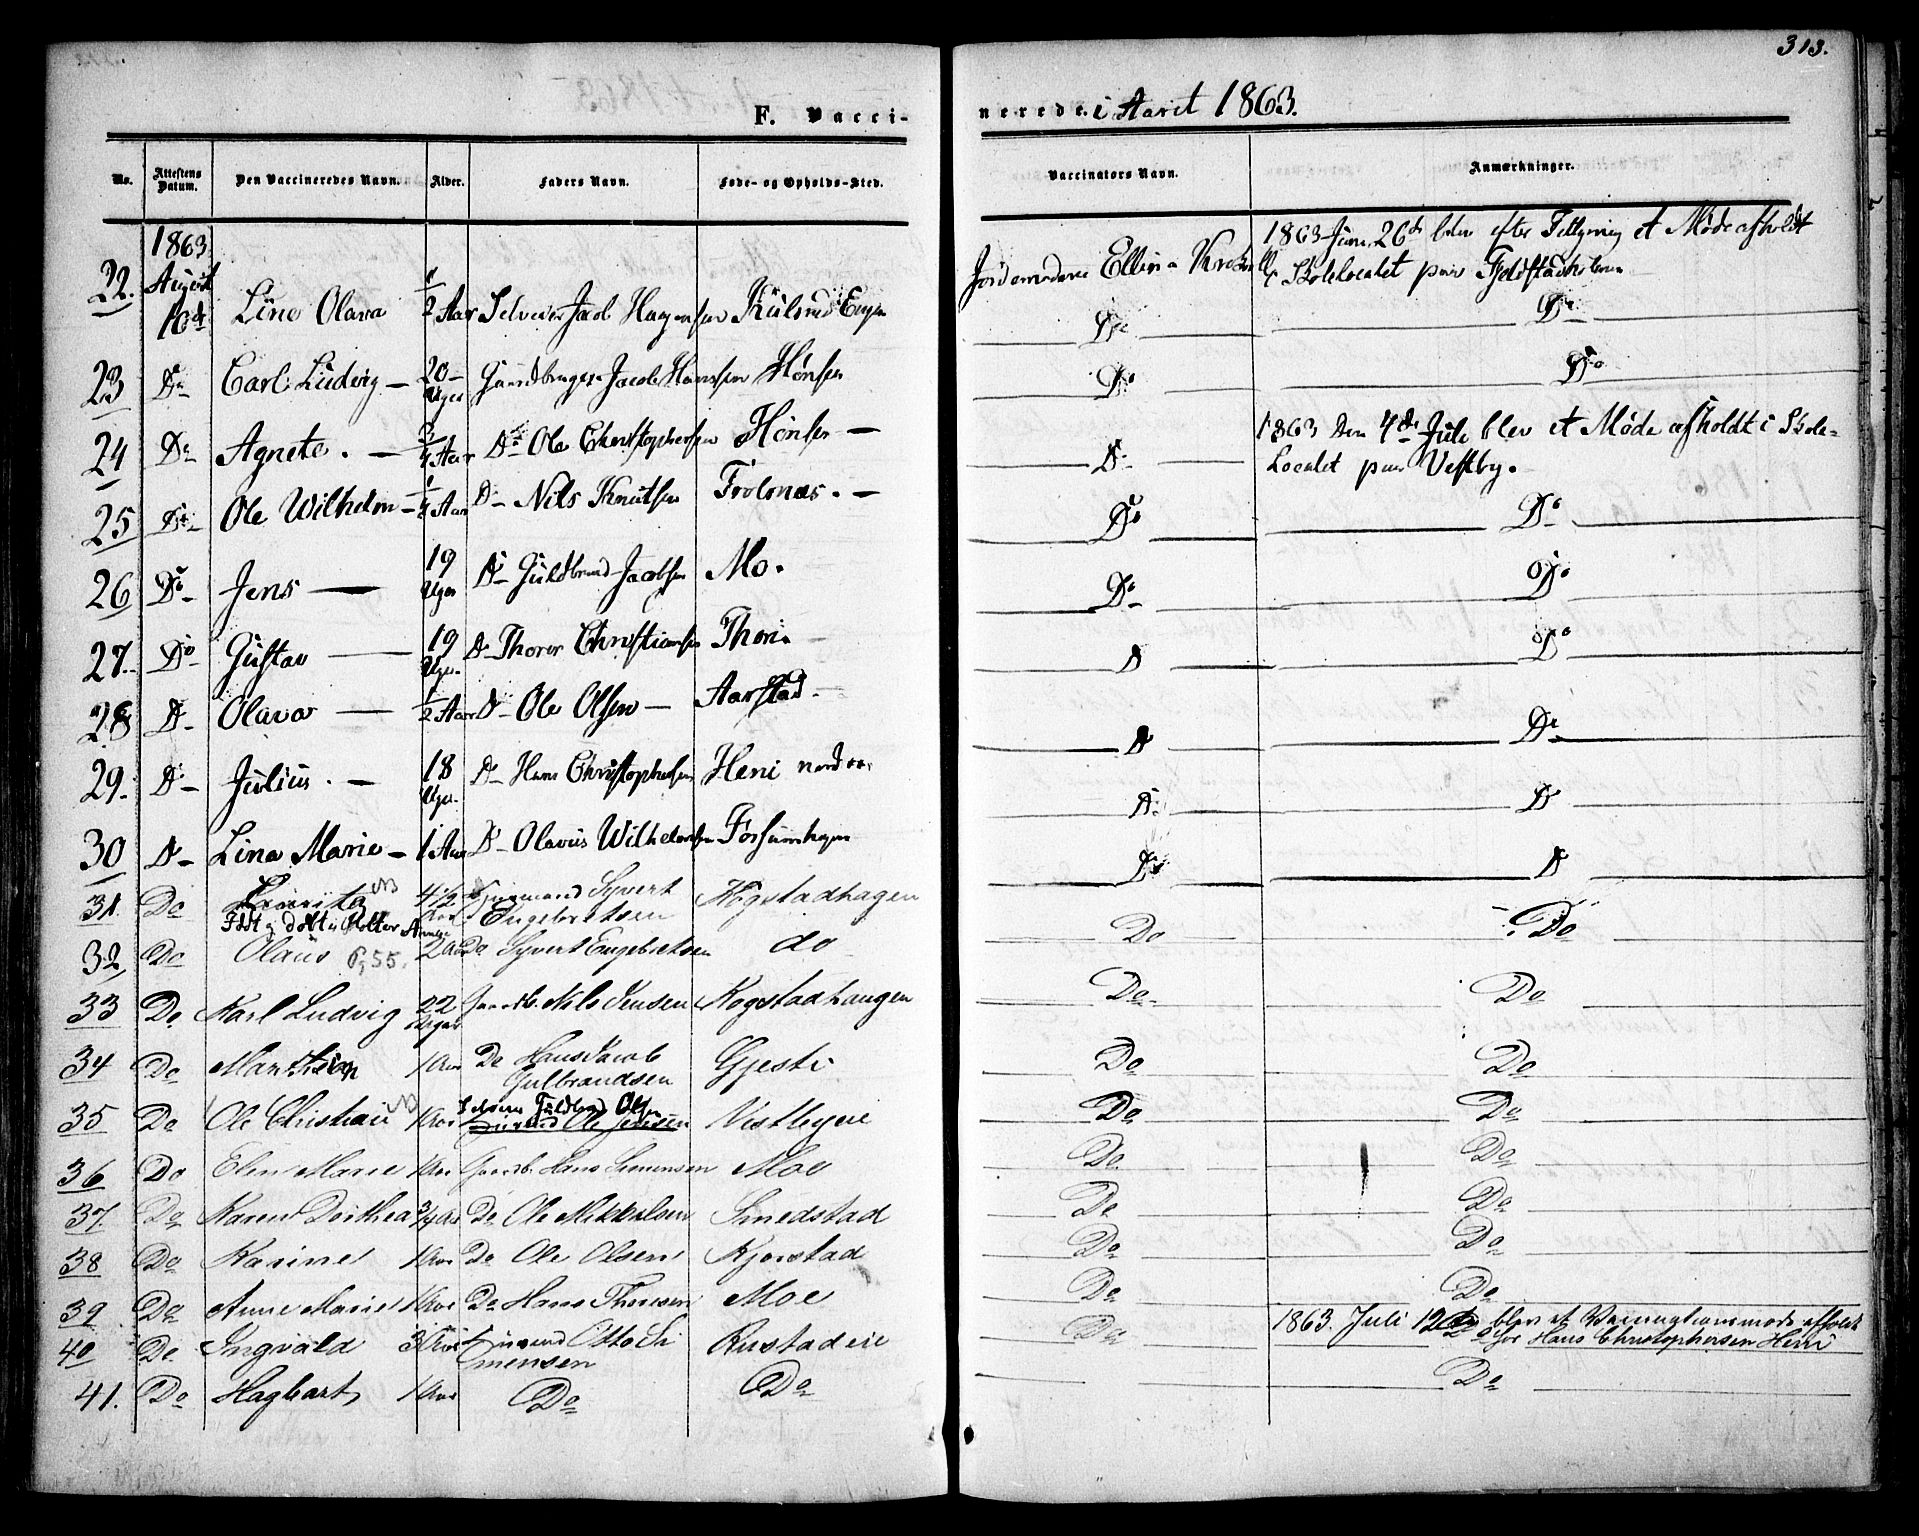 313.
F. Vaccinerede i Aaret 1863.
No. Attestens Datum. Den Vaccineredes Navn. Alder. Faders Navn. Føde- og Opholds-Sted. Vaccinators Navn. Anmærkninger.
1863
22. August 10de Line Olava 1/2 Aar Selveier Jacob Hagensen Jordemoder Ellina 1863 Juni 26de blev efter et Møde afholdt
i Skolelocalet paa
Do Do
23 Do Carl Ludvig — 20 Uger Gaardbruger Jacob Hansen Hønsen Do Do
24 Do Agnete. — 3/4 Aar Do Ole Christophersen Hønsen — Do 1863 Den 4de Juli blev et Møde afholdt i Skole-
Localet paa Vestby.
25 Do Ole Wilhelm — 1/4 Aar Do Nils Knutsen — Do Do
26 Do Jens — 19 Uger Do Guldbrand Jacobsen Mo. Do Do
27. Do Gustav — 19 Uger Do Thorer Christiansen Thoni Do Do
28 Do Olava — 1/2 Aar Do Ole Olsen — Aarstad — Do Do
29. Do Julius. — 18 Uger Do Hans Christophersen Heni nordre Do Do
30 Do Lina Marie — 1 Aar Do Olavus Wilhelmsen Fossumhagen Do Do
31. Do NB 4 1/2 Aar Syvert Engebretsen Kogstadhagen Do Do
Født og døbt i Holter Annex
32 Do Olaus P. 55. 2 Aar Do Syvert Engebretsen do Do Do
33 Do Karl Ludvig 22 Uger Gaardb. Nils Jensen Kogstadhaugen Do Do
34 Do 1 Aar Do Hans Jacob Gulbrandsen Gjesti Do Do
35 Do Ole Christian NB 1 Aar Selveier Guldbrand Olsen Vestbyeie Do Do
36 Do Elen Marie 1 Aar Gaardb. Hans Simensen Moe Do Do
37. Do Karen Dorthea 3/4 Aar Do Ole Mikkelsen Smedstad Do Do
38 Do Karine 1 Aar Do Ole Olsen Kjorstad Do Do
39 Do Anne Marie 1 Aar Do Hans Thoresen Moe Do Do
40 Do Ingvald 3 Aar Otto Simensen Rustadeie Do 1863. Juli 12te blev et Vaccinationsmøde afholdt
hos Hans Christophersen Heni
41. Do Hagbart 1 Aar Do Do Do